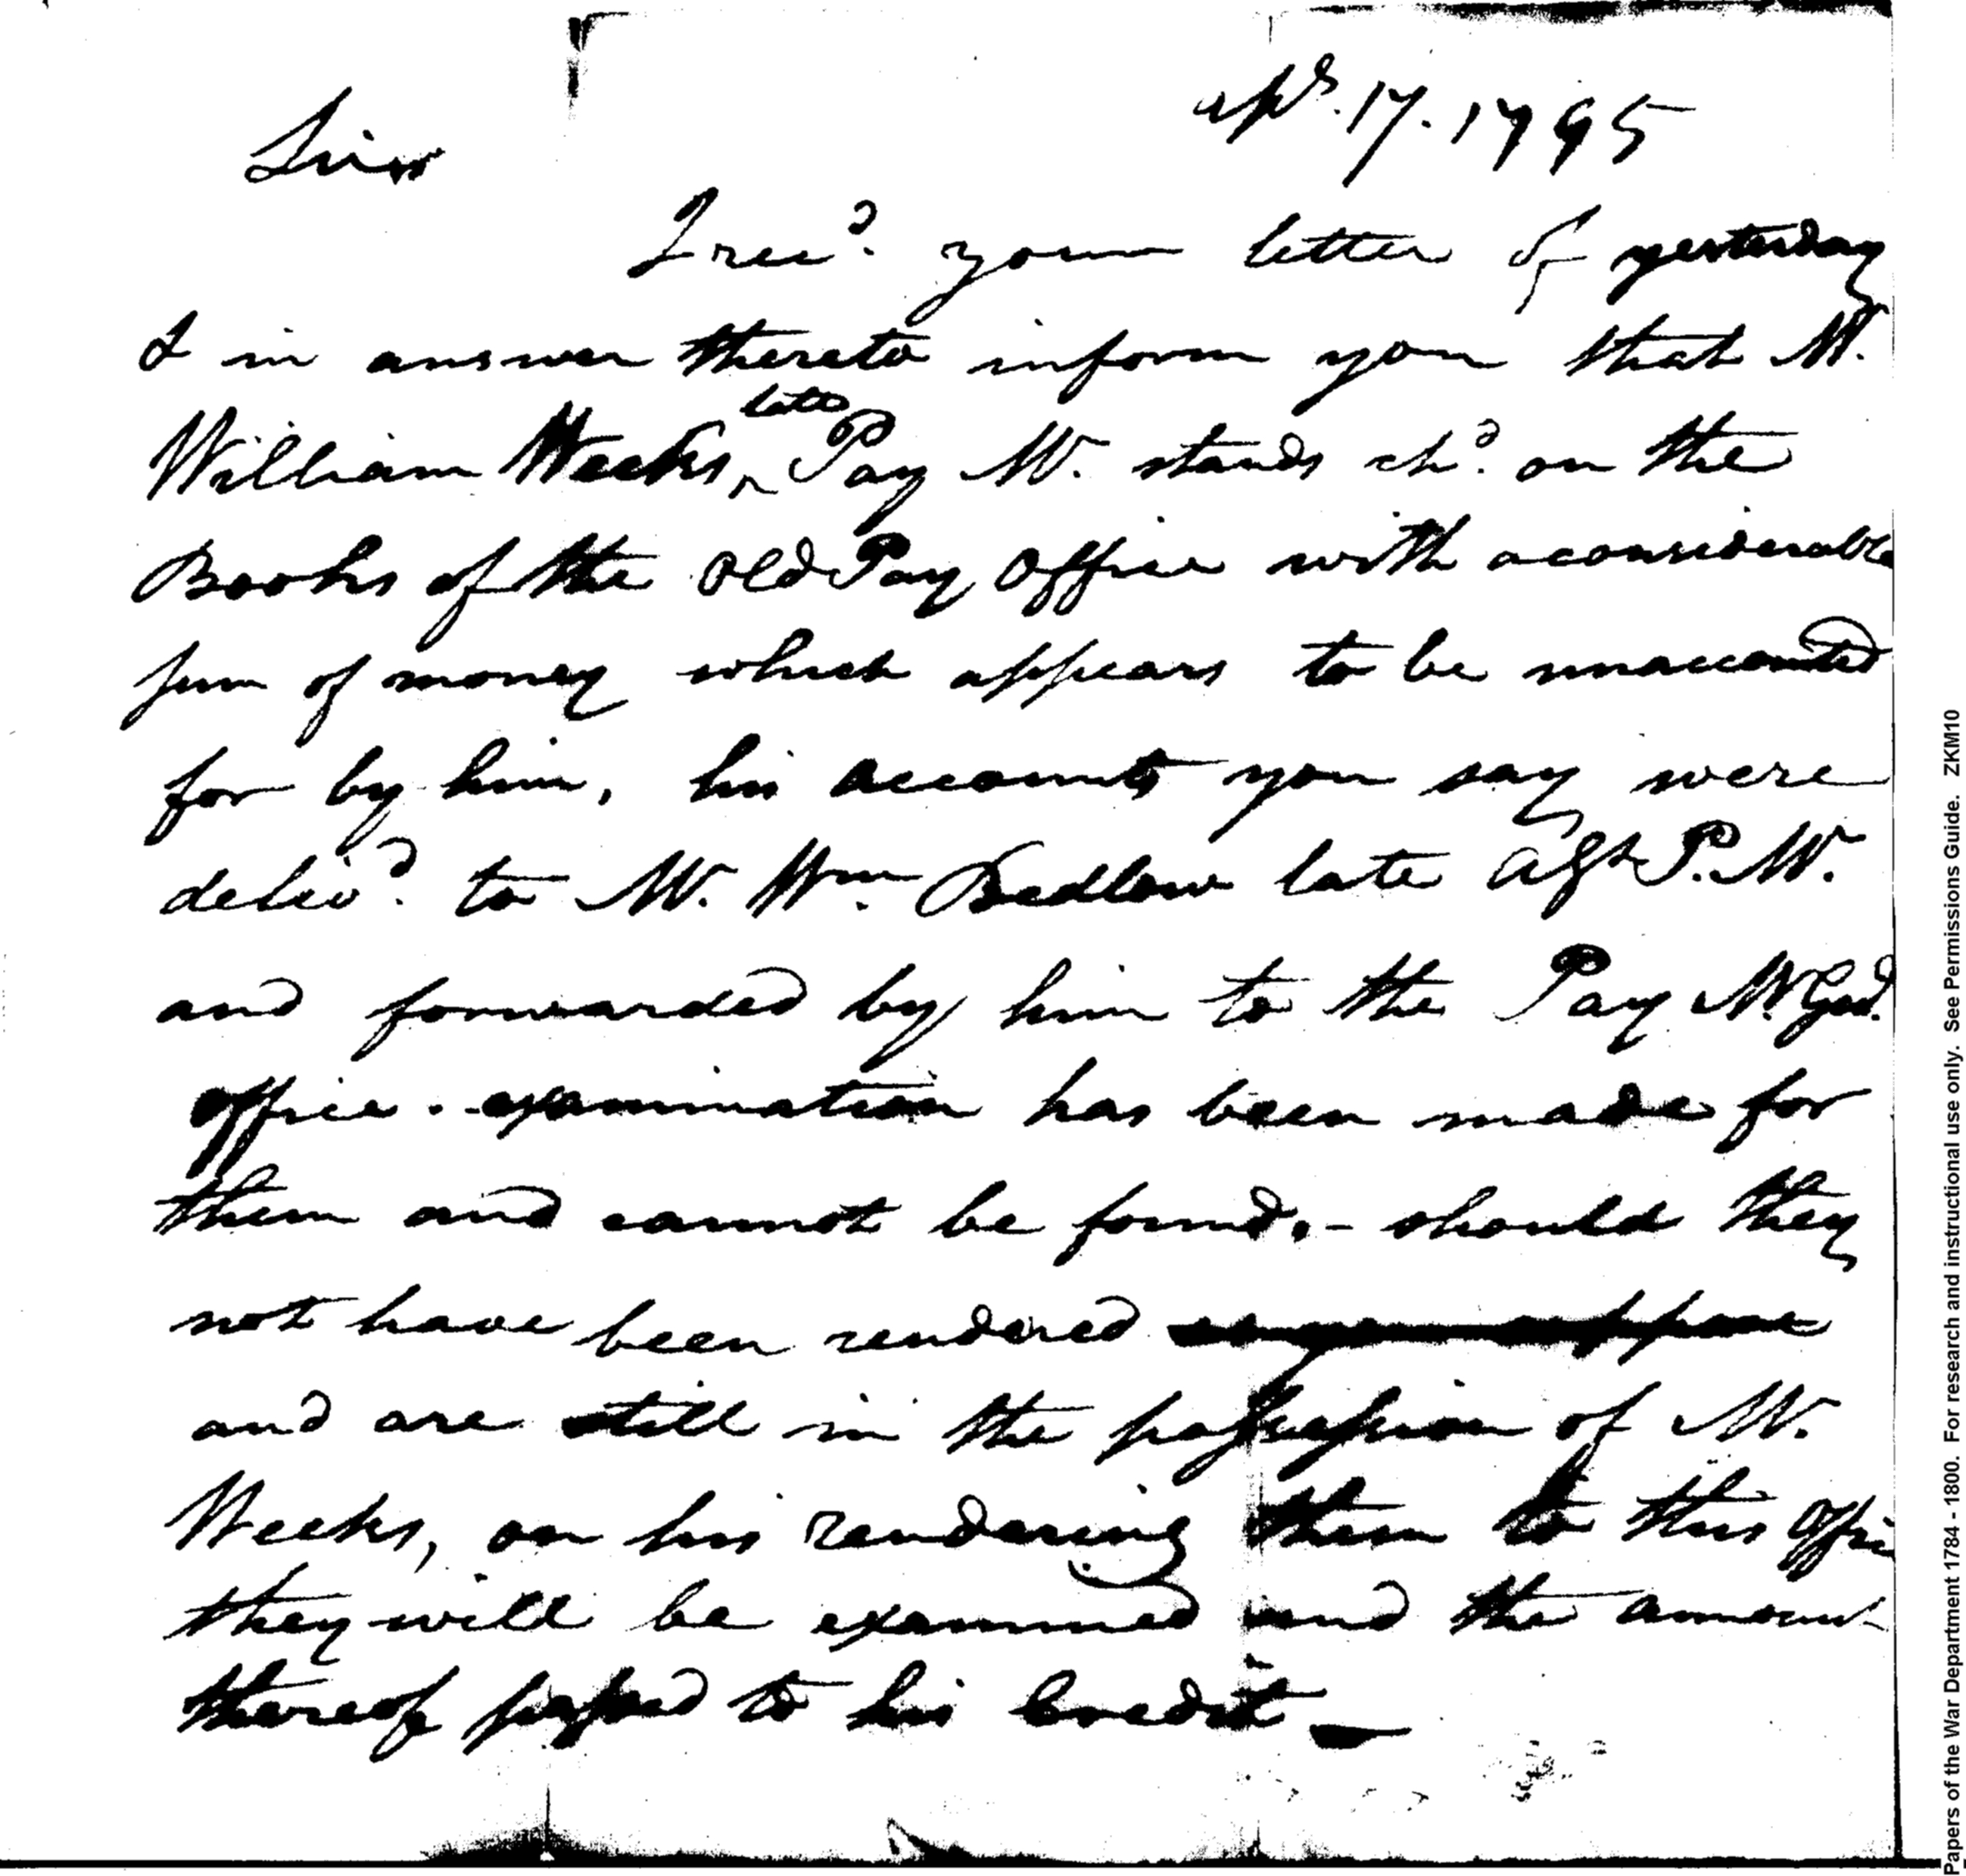 apl. 17. 1795
Sir
I recd. your letter of yesterday
& in answer thereto inform you that Mr.
late
William Weeks, Pay Mr. stands chd. on the
Books of the Old Pay Office with a considerable
sum of money which appears to be unaccounted
for by him, his accounts you say were
delivd. to Mr. Wm. Bedlow late Asst P. Mr.
and forwarded by him to the Pay Mr. Genl.
office. - examination has been made for
them and cannot be found. - should they
not have been rendered
and are still in the possession of Mr.
Weeks, on his rendering them to this Offi
they will be examined and the amount
thereof passed to his Credit —
Papers of the War Department 1784 - 1800. For research and instructional use only. See Permissions Guide. ZKM10